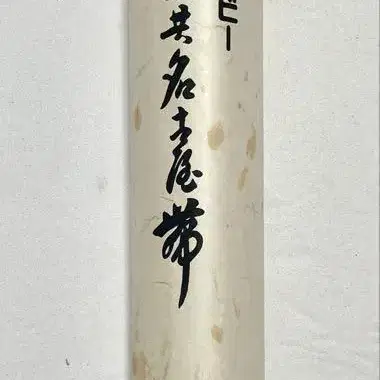 ビー
共名古屋帯